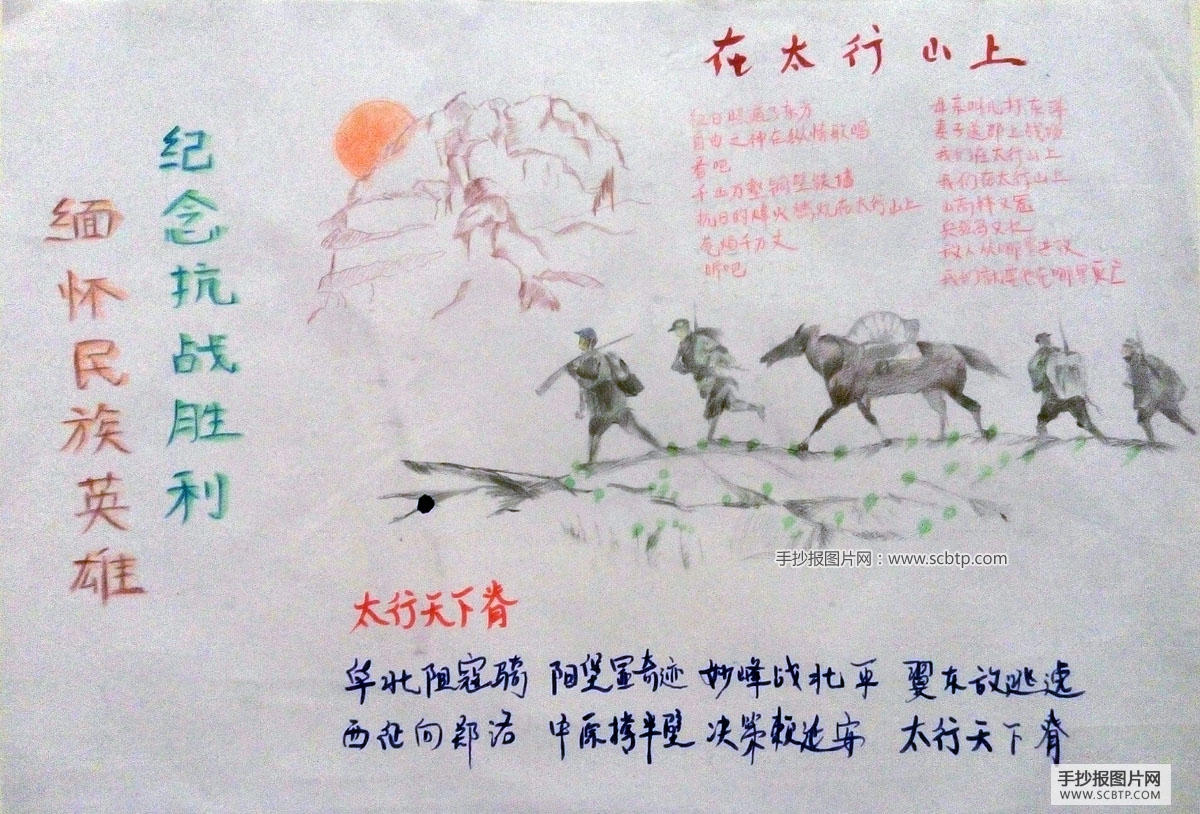 纪念抗战胜利
缅怀民族英雄
在太行山上
红日照遍了东方
自由之神在纵情歌唱
看吧
千山万壑铜壁铁墙
抗日的烽火燃烧在太行山上
气焰千万丈
听吧
母亲叫儿打东洋
妻子送郎上战场
我们在太行山上
我们在太行山上
山高林又
兵强马又壮
敌人从哪里进攻
我们就要他在哪里灭亡
手抄报图片网：www.scbtp.com
太行天下脊
华北阻寇骑 阳堡显奇迹 妙峰战北平 翼东放逃逸
西向郑洛 中原撑半壁 决策赖延安 太行天下脊
手抄报图片网
WWW.SCBTP.COM